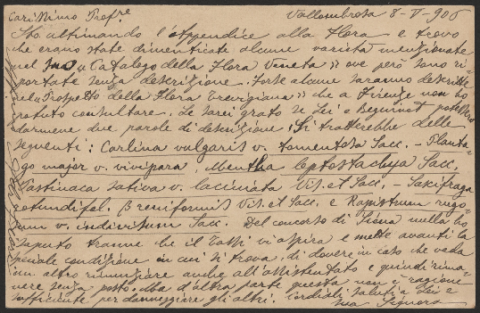 Carissimo Profre Vallombrosa 8-V-906
Sto ultimando l'appendice alla Flora e trovo
che erano state dimenticate alcune varietà menzionate
nel suo Catalogo della Flora Veneta, ove però sono ri-
portate senza descrizione. Forse alcune saranno descritte
nel "Prospetto della Flora Trevigiana" che a Firenze non ho
potuto consultare. Le sarei grato se Lei o Béguinot potesse
darmene due parole di descrizione. Si tratterebbe delle
seguenti: Carlina vulgaris v. tomentosa Sacc. - Planta-
go major v. vivipara, Mentha leptostachya Sacc.
Pastinaca sativa v. laciniata Vis. et Sacc. - Saxifraga
rotundifol. B reniformis Vis. et Sacc. e Rapistrum rugo-
sum v. indivisum Sacc. Del concorso di Siena nulla ho
saputo tranne che il Tassi vi aspira e mette avanti la
speciale condizione in cui si trova, di dovere in caso che vada
un altro rinunziare anche all'assistentato e quindi rima-
nere senza posto. Ma d'altra parte questa non è ragione
sufficiente per danneggiare gli altri. Cordiali saluti a Lei e
sua Signora